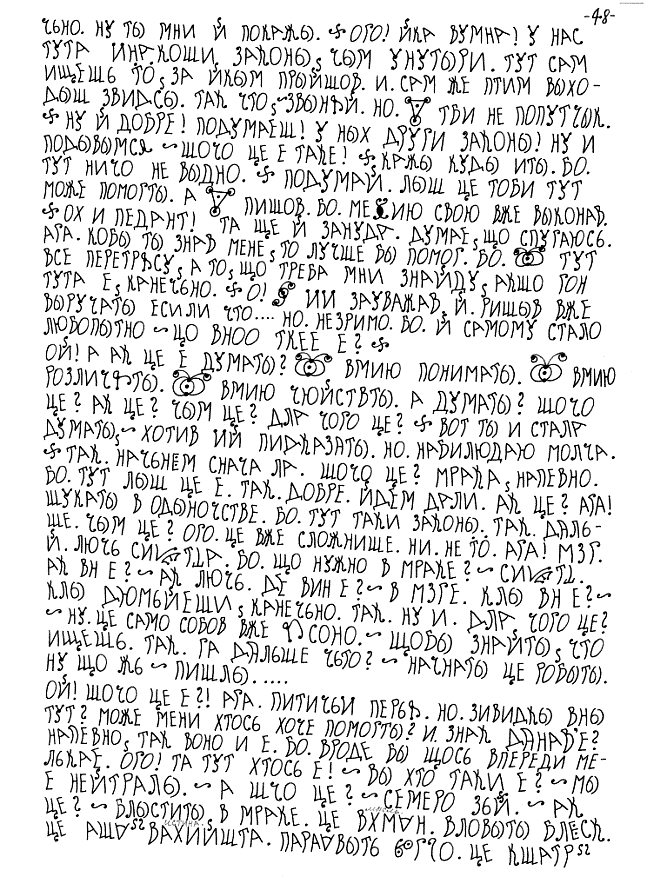 -48-
ЧЬНО. НУ ТЫ МНИ Й ПОКАЖЫ. ОГО! ЙКА ВУМНА! У НАС
ТУТА ИНАКОШИ ЗАКОНЫ, ЧЫМ УНУТЫРИ. ТУТ САМ
ИЩЕШЬ ТО, ЗА ЙКЫМ ПРЫЙШОВ. И. САМ ЖЕ ПТИМ ВЫХО-
ДЫШ ЗВИДСЫ. ТАК ЧТО, ЗВЫНЯЙ. НО. ТВИ НЕ ПОПУТЧЫК.
НУ Й ДОБРЕ! ПОДУМАЕШ! У НЫХ ДРУГИ ЗАКОНЫ! НУ И
ПОДЫВЫМСЯ ~ ШОЧО ЦЕ Е ТАКЕ! КАЖЫ КУДЫ ИТЫ. БО.
ТУТ НИЧО НЕ ВЫДНО. ПОДУМАЙ. ЛЫШ ЦЕ ТОБИ ТУТ
МОЖЕ ПОМОГТЫ. А ПИШОВ. БО. СВОЮ ВЖЕ ВЫКОНАВ.
ОХ И ПЕДАНТ! ТА ЩЕ Й ЗАНУДА. ДУМАЕ, ЩО СПУГАЮСЬ.
АГА. КОБЫ ТЫ ЗНАВ МЕНЕ, ТО ЛУЧШЕ БЫ ПОМОГ. БО. ТУТ
ВСЕ ПЕРЕТРЯСУ, А ТО, ЩО ТРЕБА МНИ ЗНАЙДУ, АКШО ГОН
ТУТА Е, КАНЕЧЬНО. О! ИИ ЗАУВАЖАВ, Й. РИШЫВ ВЖЕ
ВЫРУЧАТЫ ЕСИЛИ ЧТО.... НО. НЕЗРИМО. БО. Й САМОМУ СТАЛО
ЛЮБОПЫТНО ~ ЦО ВНОО ТКЕЕ Е?
ОЙ! А АК ЦЕ Е ДУМАТЫ? ВМИЮ ПОНИМАТЫ. ВМИЮ
РОЗЛИЧЯТЫ. ВМИЮ ЧЮЙСТВТЫ. А ДУМАТЫ? ШОЧО
ЦЕ? АК ЦЕ? ЧЫМ ЦЕ? ДЛА ЧОГО ЦЕ? ВОТ ТЫ И СТАЛА
ДУМАТЫ, ~ ХОТИВ ИЙ ПИДКАЗАТЫ. НО. НАБИЛЮДАЮ МОЛЧА.
ТАК. НАЧЬНЕМ СНАЧА ЛА. ШОЧО ЦЕ? МРАКА, НАПЕВНО.
БО. ТУТ ЛЫШ ЦЕ Е. ТАК. ДОБРЕ. ЙДЕМ ДАЛИ. АК ЦЕ? АГА!
ШУКАТЫ В ОДЫНОЧСТВЕ. БО. ТУТ ТАКИ ЗАКОНЫ. ТАК. ДАЛЬ-
ШЕ. ЧЫМ ЦЕ? ОГО. ЦЕ ВЖЕ СЛОЖНИШЕ. НИ. НЕ ТО. АГА! МЗГ.
Й. ЛЮЧЬ БО. ЩО НУЖНО В МРАКЕ? ~
АК ВН Е? ~ АК ЛЮЧЬ. ДЕ ВИН Е? ~ В МЗГЕ. КЛЫ ВН Е? ~
КЛЫ ДЮМЬЙЕШИ, КАНЕЧЬНО. ТАК. НУ И. ДЛА ЧОГО ЦЕ?
~ НУ. ЦЕ САМО СОБОВ ВЖЕ ~ ЩОБЫ ЗНАЙТЫ, ЧТО
ИЩЕШЬ. ТАК. ГА ДАЛЬШЕ ЧЬТО? ~ НАЧНАТЫ ЦЕ РОБЫТЫ.
НУ ЩО ЖЬ ~ ПИШЛЫ.....
ОЙ! ШОЧО ЦЕ Е?! АГА. ПИТИЧЬИ ПЕРЬЯ. НО. ЗИВИДКЫ ВНЫ
ТУТ? МОЖЕ МЕНИ ХТОСЬ ХОЧЕ ПОМОГТЫ? И. ЗНАК
НАПЕВНО, ТАК ВОНО И Е. БО. ВРОДЕ БЫ ЩОСЬ ВПЕРЕДИ МЕ-
ЛЬКАЕ. ОГО! ТА ТУТ ХТОСЬ Е! ~ ВЫ ХТО ТАКИ Е? ~ МЫ
Е НЕЙТРАЛЫ. ~ А ШЧО ЦЕ? ~ СЕМЕРО ЗБЙ. ~ АК
ЦЕ? ~ БЛЫСТИТЫ, В МРАКЕ. ЦЕ ВХМАН. ВЛОВЫТЫ ВЛЕСК.
ЦЕ ВАХИЙИШТА. ЦЕ